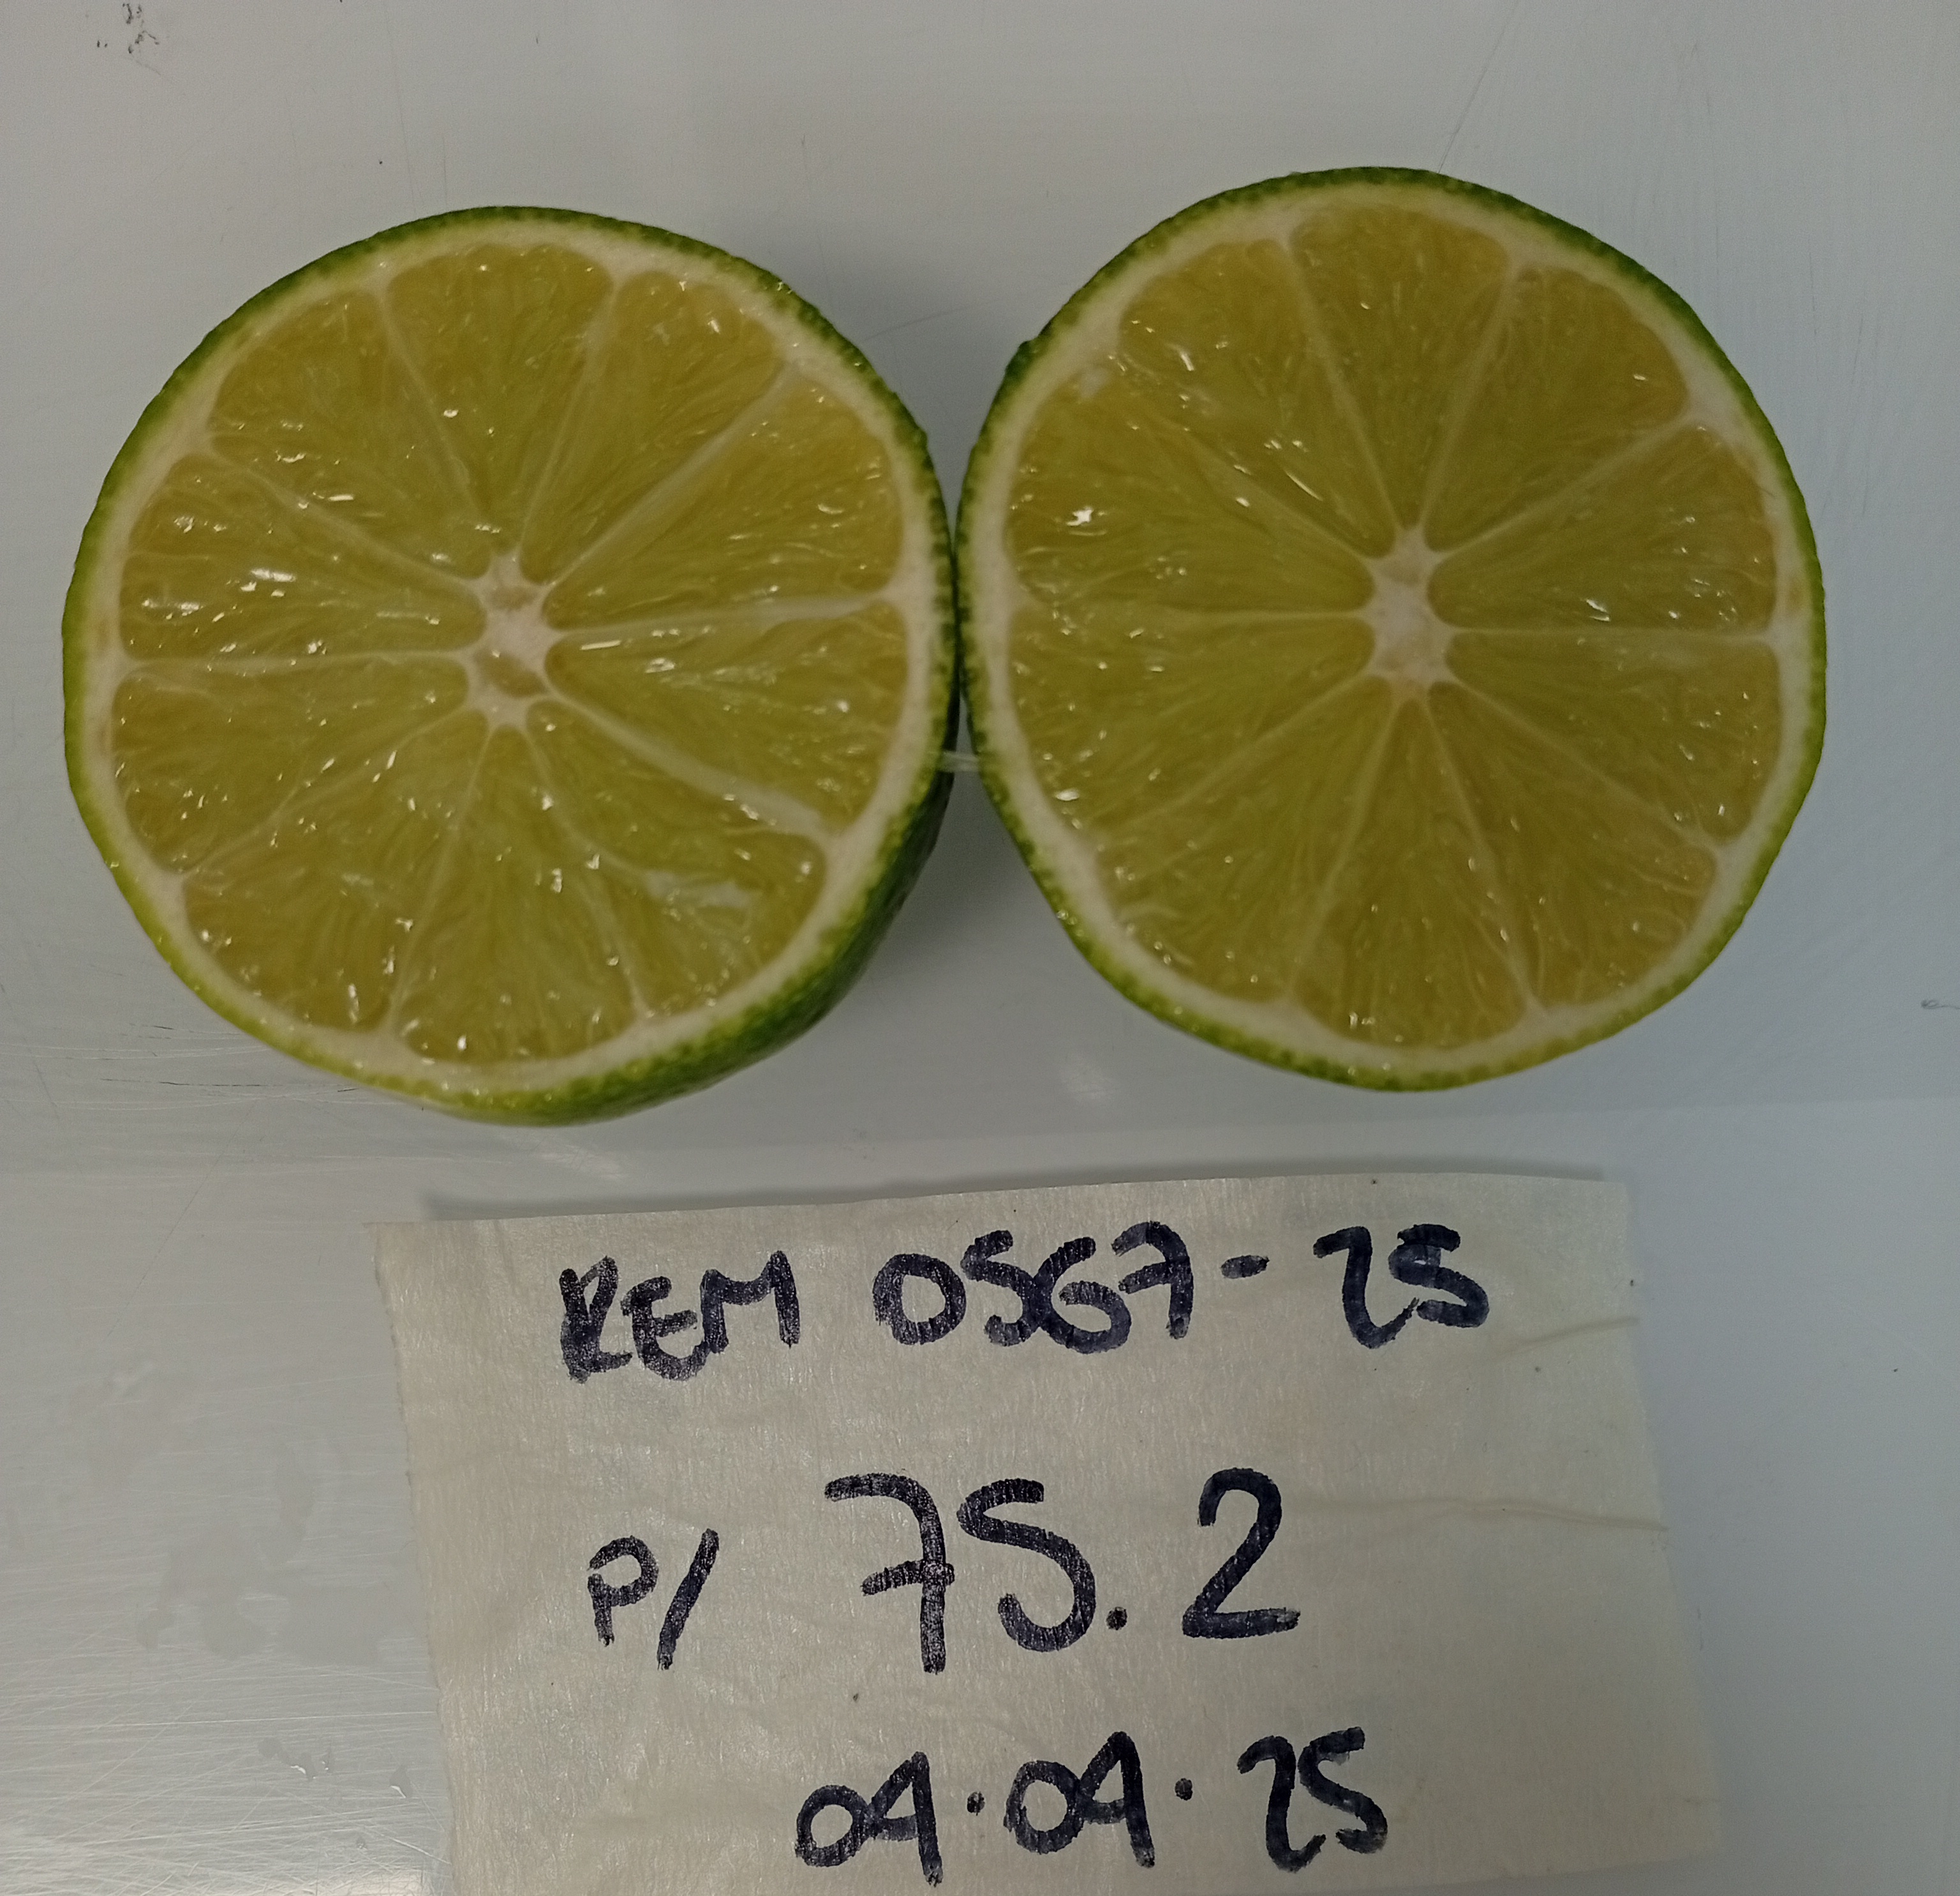 REM 0567-25
P/ 75.2
04.04.25